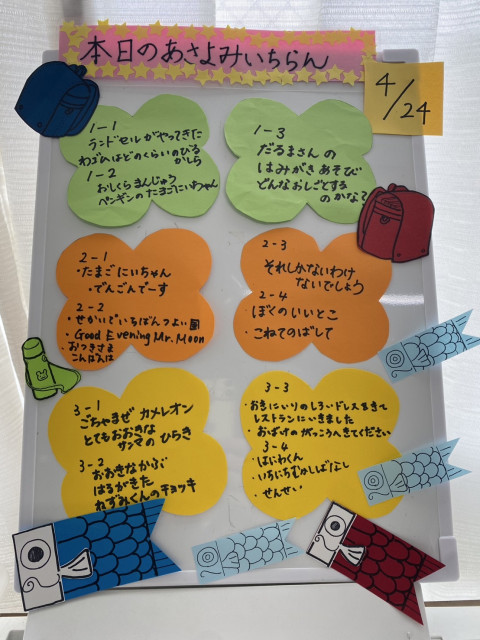 本日のあさよみいちらん
4/24
1-1
ランドセルがやってきた
わゴムはどのくらいのびる
かしら
1-2
おしくらまんじゅう
ペンギンのたまごにいちゃん
1-3
だるまさんの
はみがきあそび
どんなおしごとする
のかな?
2-1
・たまごにいちゃん
・でんごんでーす
2-2
・せかいでいちばんつよい国
・Good Evening Mr. Moon
・おつきさま
こんばんは
2-3
それしかないわけ
ないでしょう
2-4
・ぼくのいいとこ
・こねてのばして
3-1
ごちゃまぜ カメレオン
とてもおおきな
サンマの ひらき
3-2
おおきなかぶ
はるがきた
ねずみくんのチョッキ
3-3
・おきにいりのしろいドレスをきて
レストランにいきました
・おばけのがっこうへきてください
3-4
・はにわくん
・いちにちむかしばなし
・せんせい